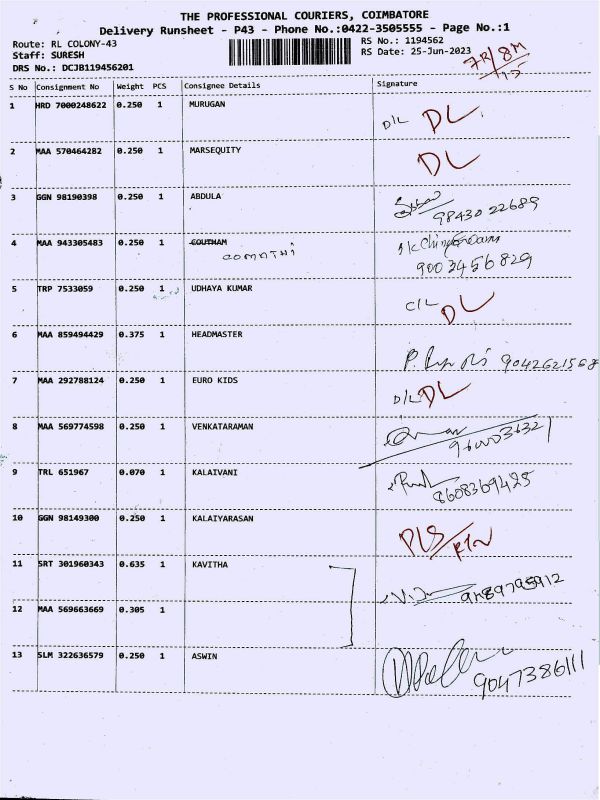 THE PROFESSIONAL COURIERS, COIMBATORE
Delivery Runsheet - P43 - Phone No.:0422-3505555 - Page No.:1
Route: RL COLONY-43 RS No.: 1194562
Staff: SURESH RS Date: 25-Jun-2023
DRS No.: DCJB119456201
7R/8M
S No Consignment No Weight PCS Consignee Details Signature
1 HRD 7000248622 0.250 1 MURUGAN D/L DL
2 MAA 570464282 0.250 1 MARSEQUITY DL
3 GGN 98190398 0.250 1 ABDULA
9843022689
4 MAA 943305483 0.250 1 GOUTHAM
GOMATHI
9003456829
5 TRP 7533059 0.250 1 UDHAYA KUMAR C/L DL
6 MAA 859494429 0.375 1 HEADMASTER
7 MAA 292788124 0.250 1 EURO KIDS D/L DL
8 MAA 569774598 0.250 1 VENKATARAMAN
9 TRL 651967 0.070 1 KALAIVANI
8608369425
10 GGN 98149300 0.250 1 KALAIYARASAN
11 SRT 301960343 0.635 1 KAVITHA
12 MAA 569663669 0.305 1
13 SLM 322636579 0.250 1 ASWIN
9047386111